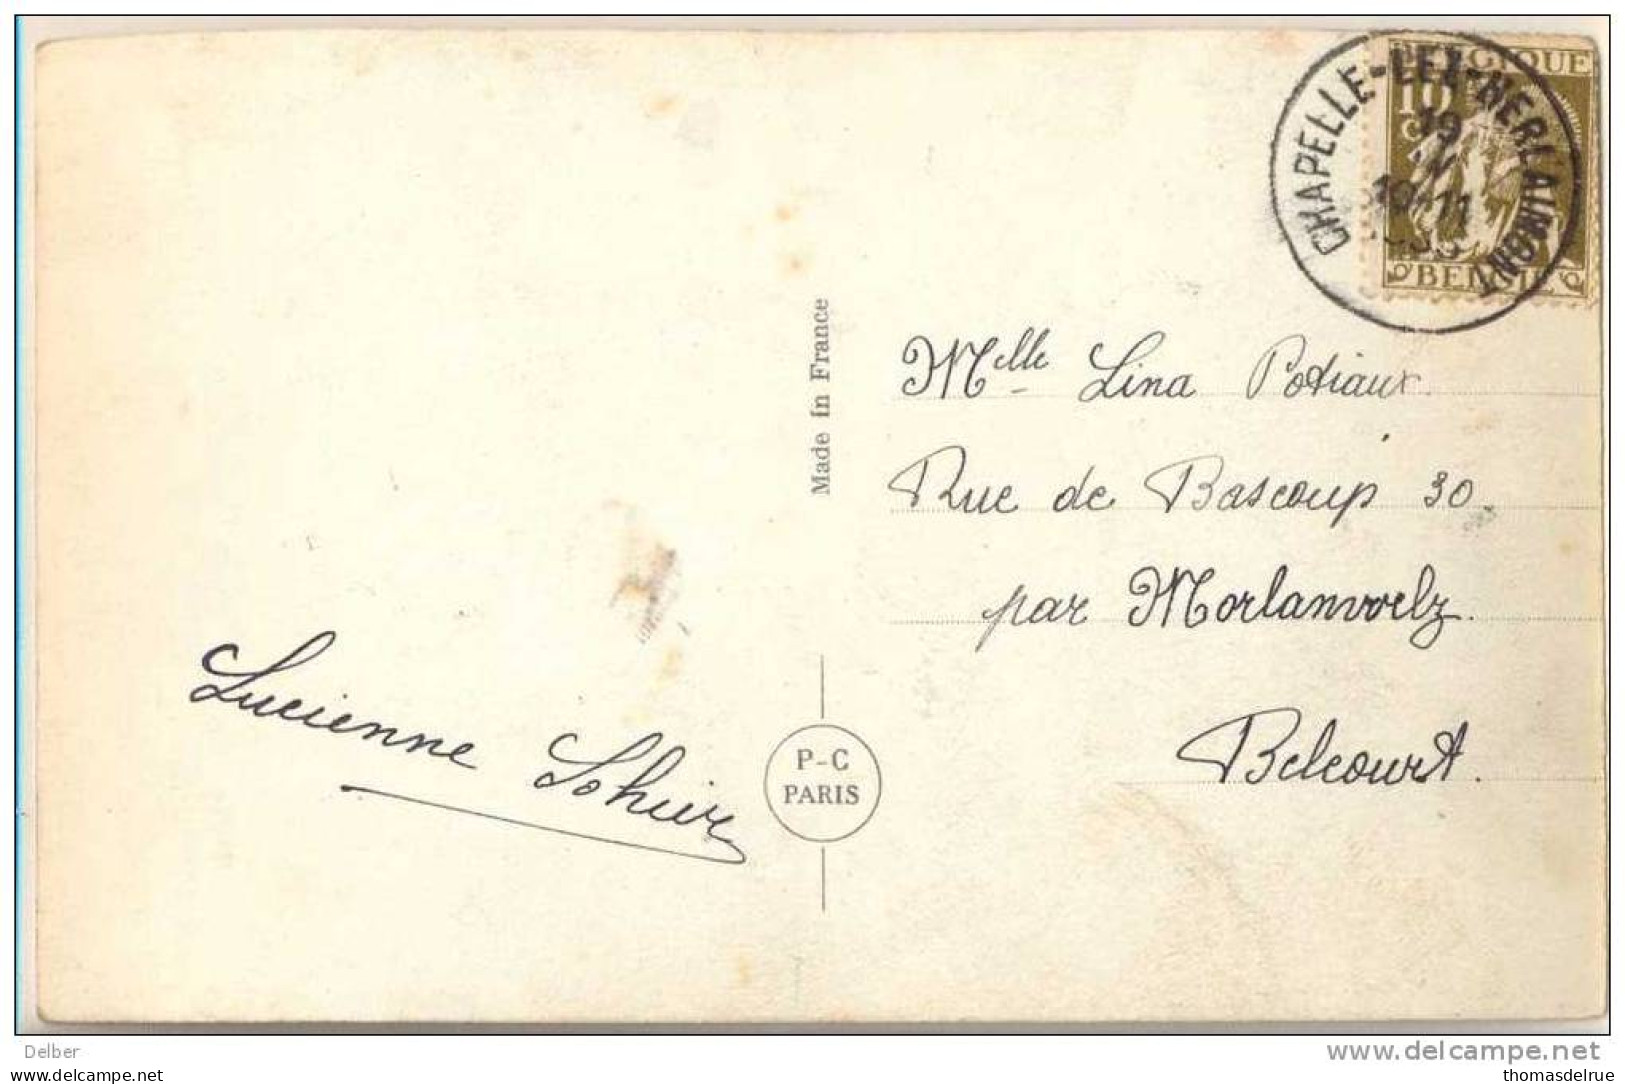 BELGIQUE
10
CHAPELLE-LEZ-HERLAIMONT
19
10-11
BELGIË
Made in France
Mlle Lina Potiaux.
Rue de Bascoup 30.
par Morlanwelz.
Belcourt.
Lucienne Sohier
P-C
PARIS
Delber
www.delcampe.net
thomasdelrue